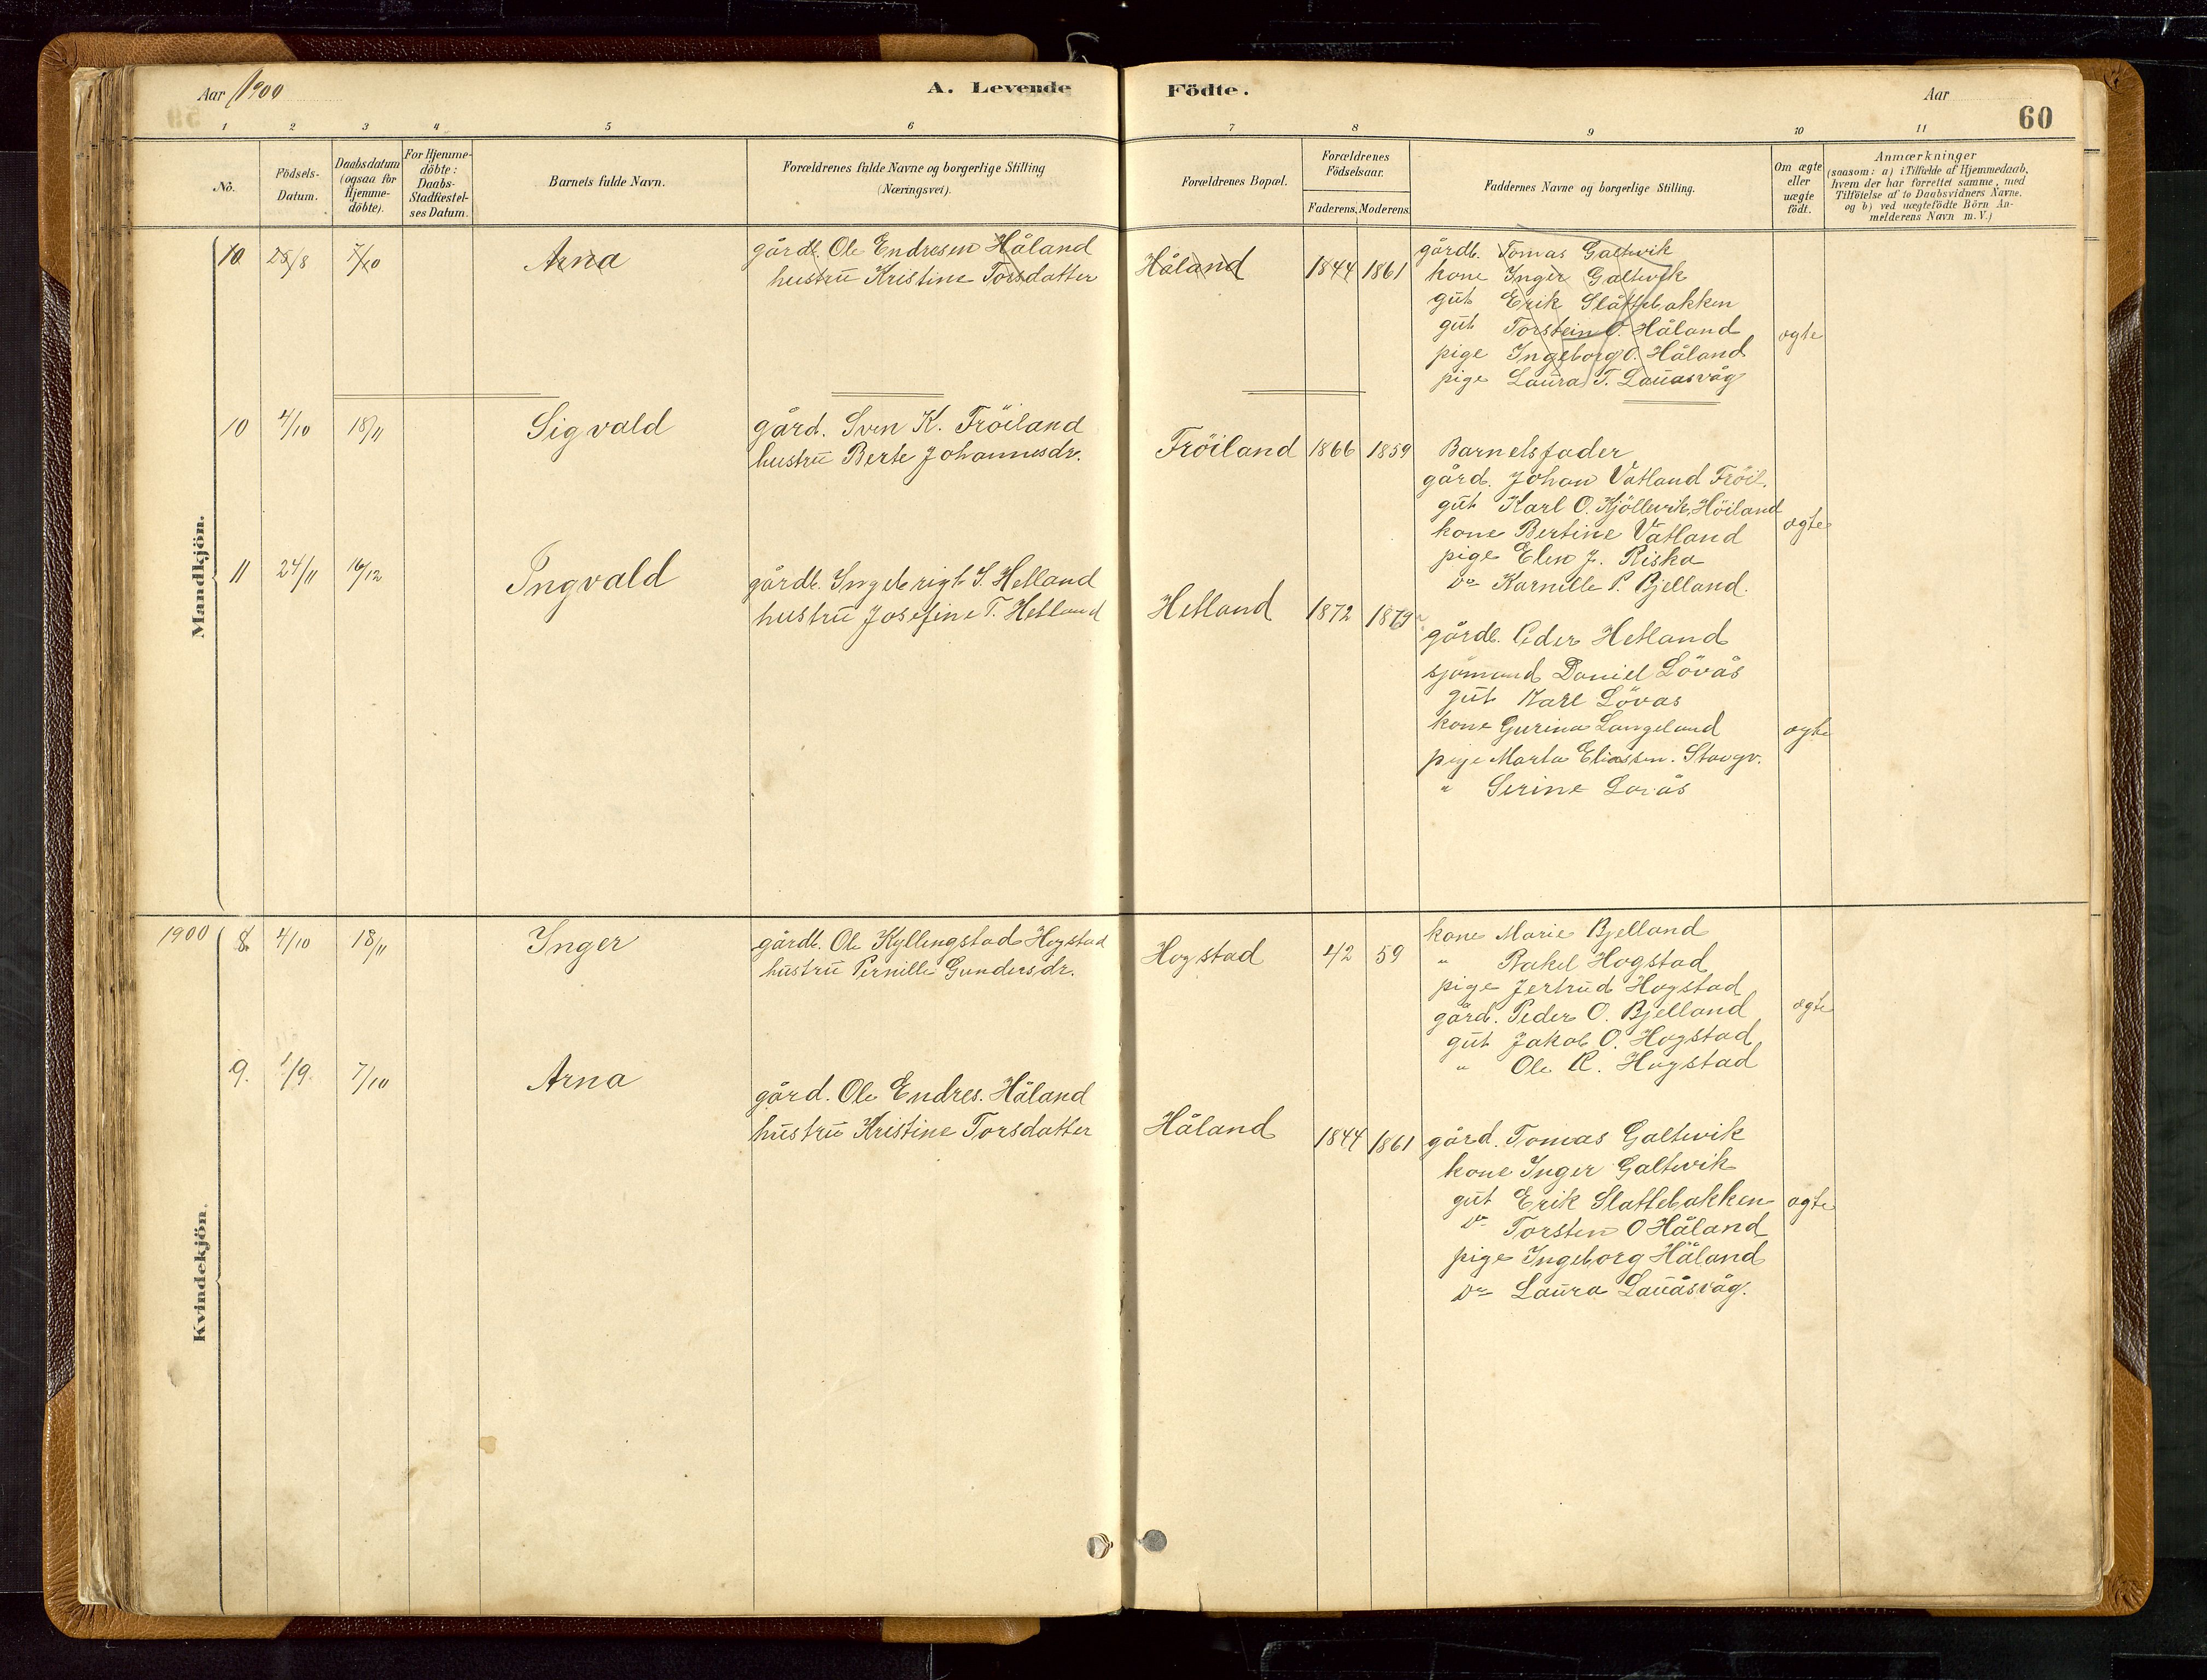 Aar 1900
A. Levende Födte.
Aar
60
1 2 3 4 5 6 7 8 9 10 11
No.
Födsels-
Datum.
Daabsdatum
(ogsaa for
Hjemme-
döbte).
For Hjemme-
döbte:
Daabs-
Stadfæstel-
ses Datum.
Barnets fulde Navn.
Forældrenes fulde Navne og borgerlige Stilling
(Næringsvei).
Forældrenes Bopæl.
Forældrenes
Födselsaar.
Faderens. Moderens.
Faddernes Navne og borgerlige Stilling.
Om ægte
eller
uægte
födt.
Anmærkninger
(saasom: a) i Tilfælde af Hjemmedaab,
hvem der har forrettet samme, med
Tilföielse af to Daabsvidners Navne.
og b) ved uægtefödte Börn An-
melderens Navn m. V.)
Mandkjön.
10 25/8 7/10 Arna
gårdb. Ole Endresen Håland
hustru Kristine Torsdatter
Håland 1844 1861
gårdb. Tomas Galtevik
kone Inger Galtevik
gut Erik Slåttebakken
gut Torstein O. Håland
pige Ingeborg O. Håland
pige Laura T. Lauasvåg
ægte
10 4/10 18/11 Sigvald
gård. Sven K. Fröiland
hustru Berte Johannesdr.
Fröiland 1866 1859
Barnetsfader
gård. Johan Vatland Fröil.
gut Karl O. Kjöllevik, Höiland
kone Bertine Vatland
pige Elen J. Riska
do Karnille P. Bjelland.
ægte
11 24/11 16/12 Ingvald
gårdb. Ingebrigt S. Hetland
hustru Josefine T. Hetland
Hetland 1872 1879
gårdb. Peder Hetland
sjömand Daniel Lövås
gut Karl Lövas
kone Gurina Langeland
pige Marta Eliassen. Stavgr.
" Serine Lovås
ægte
Kvindekjön.
1900 8. 4/10 18/11 Inger
gårdb. Ole Kyllingstad Hogstad
hustru Pernille Gundersdr.
Hogstad 42 59
kone Marie Bjelland
" Rakel Hogstad
pige Jertrud Hogstad
gård. Peder O. Bjelland
gut Jakob O. Hogstad
" Ole R. Hogstad
ægte
9. 1/9 7/10 Arna
gård. Ole Endres. Håland
hustru Kristine Torsdatter
Håland 1844 1861
gård. Tomas Galtevik
kone Inger Galtevik
gut Erik Slattebakken
do Torsten O Håland
pige Ingeborg Håland
do Laura Lauåsvåg.
ægte